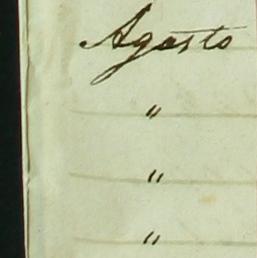 Agosto
"
"
"